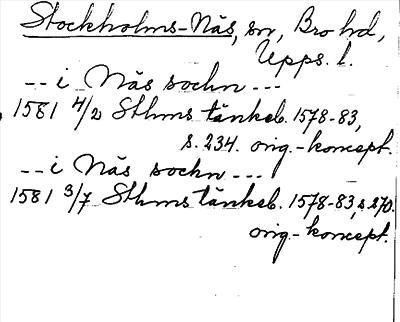 Stockholms-Näs, sn, Bro hd,
Upps. l.
-- i Näs sochn ---
1581 4/2 Sthms tänkeb. 1578-83,
s. 234. orig.-koncept.
-- i Näs sochn ---
1581 3/7 Sthms tänkeb. 1578-83, s 270.
orig.-koncept.